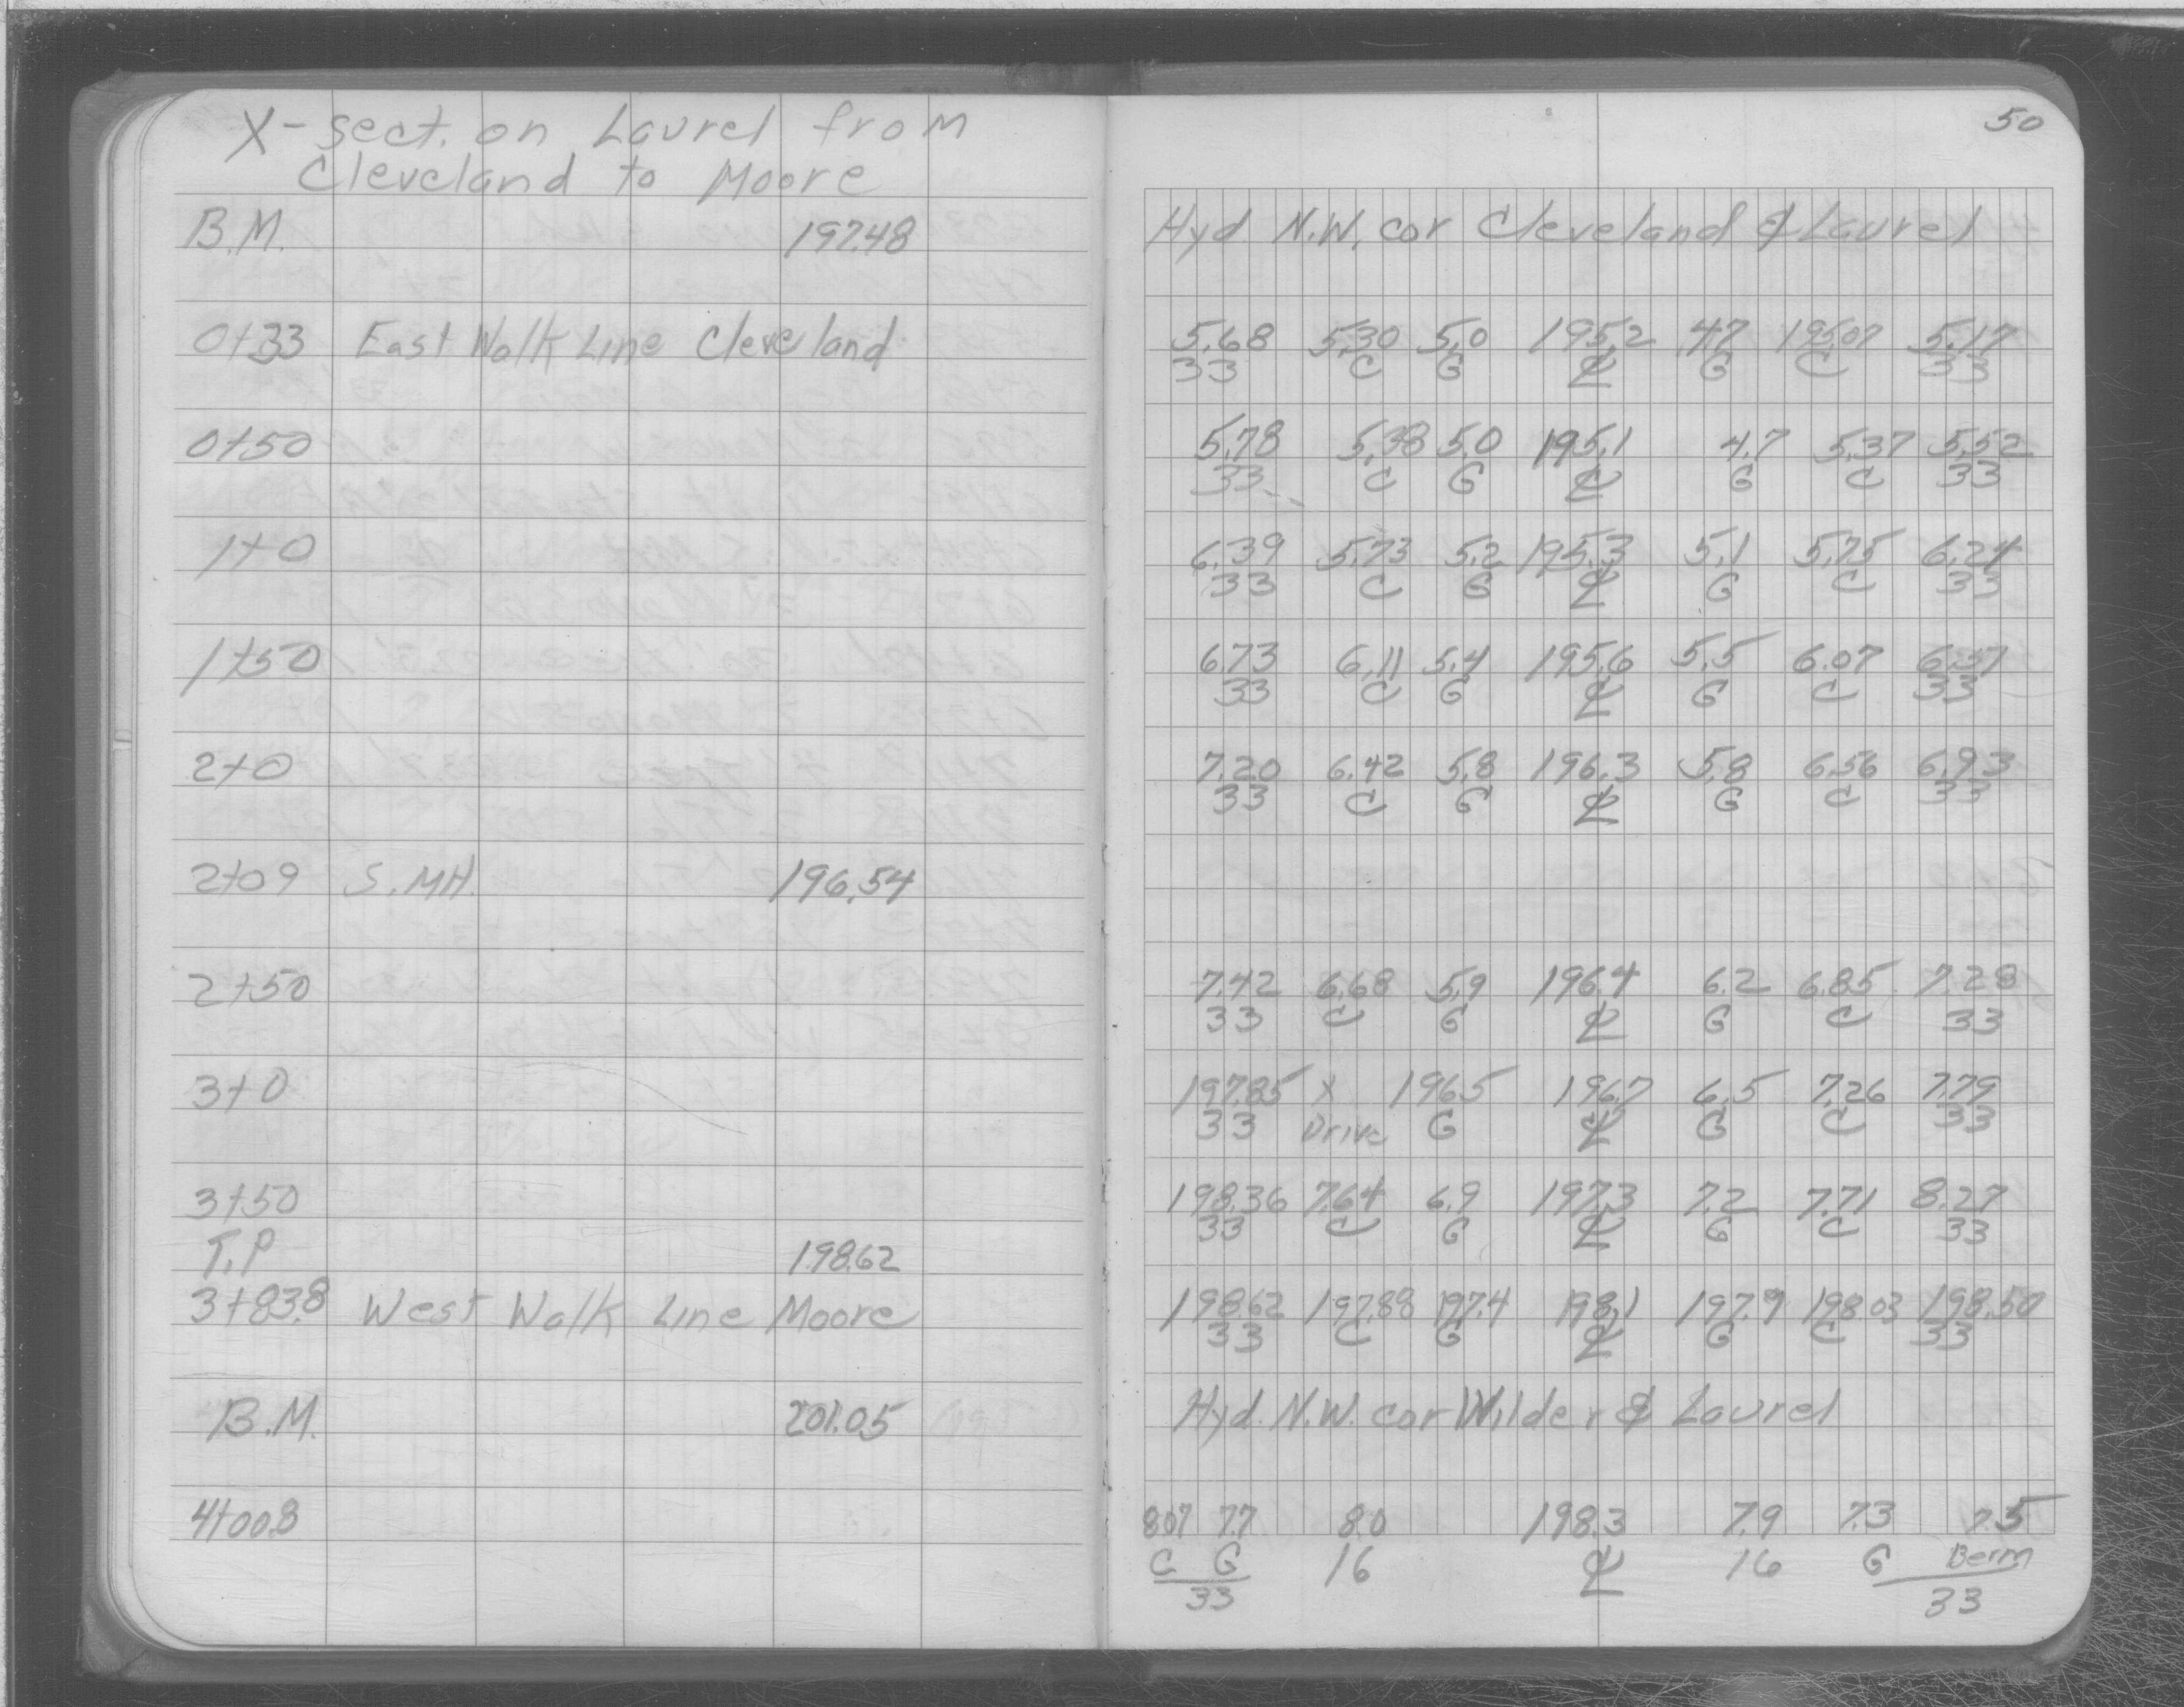 X-sect. on Laurel from
Cleveland to Moore
B.M. 197.48
0+33 East Walk Line Cleveland
0+50
1+0
1+50
2+0
2+09 S.MH. 196.54
2+50
3+0
3+50
T.P 198.62
3+83.8 West Walk Line Moore
B.M. 201.05
4+00.8
50
Hyd N.W. cor Cleveland & Laurel
5.68 5.30 5.0 195.2 4.7 195.07 5.17
33 C G ℄ G C 33
5.78 5.38 5.0 195.1 4.7 5.37 5.52
33 C G ℄ G C 33
6.39 5.73 5.2 195.3 5.1 5.75 6.24
33 C G ℄ G C 33
6.73 6.11 5.4 195.6 5.5 6.07 6.57
33 C G ℄ G C 33
7.20 6.42 5.8 196.3 5.8 6.56 6.93
33 C G ℄ G C 33
7.42 6.68 5.9 196.4 6.2 6.85 7.28
33 C G ℄ G C 33
197.85 X 196.5 196.7 6.5 7.26 7.79
33 Drive G ℄ G C 33
198.36 7.64 6.9 197.3 7.2 7.71 8.27
33 C G ℄ G C 33
198.62 197.88 197.4 198.1 197.9 198.03 198.50
33 C G ℄ G C 33
Hyd. N.W. cor Wilder & Laurel
8.07 7.7 8.0 198.3 7.9 7.3 7.5
C G 16 ℄ 16 G Berm
33 33